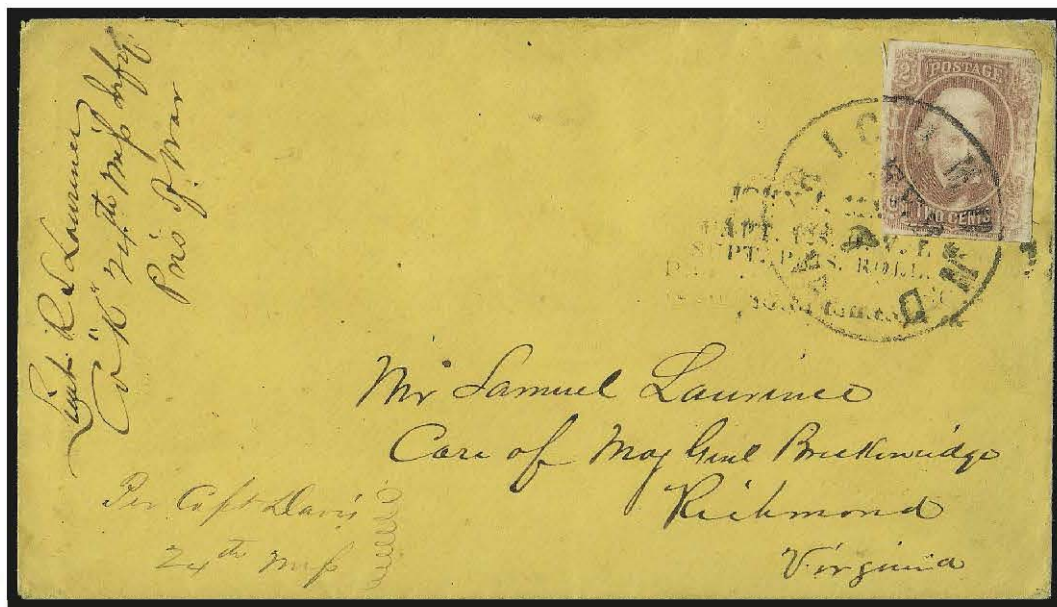 Lieut. R. L. Laurince
Co "K" 24th Miss Infy.
Pris of War
2
POSTAGE
TWO CENTS
RICHMOND
CAPT. V. I.
SUPT. P.
Mr Samuel Laurince
Care of Maj Genl Breckenridge
Richmond
Virginia
Per Capt Davis
24th Miss